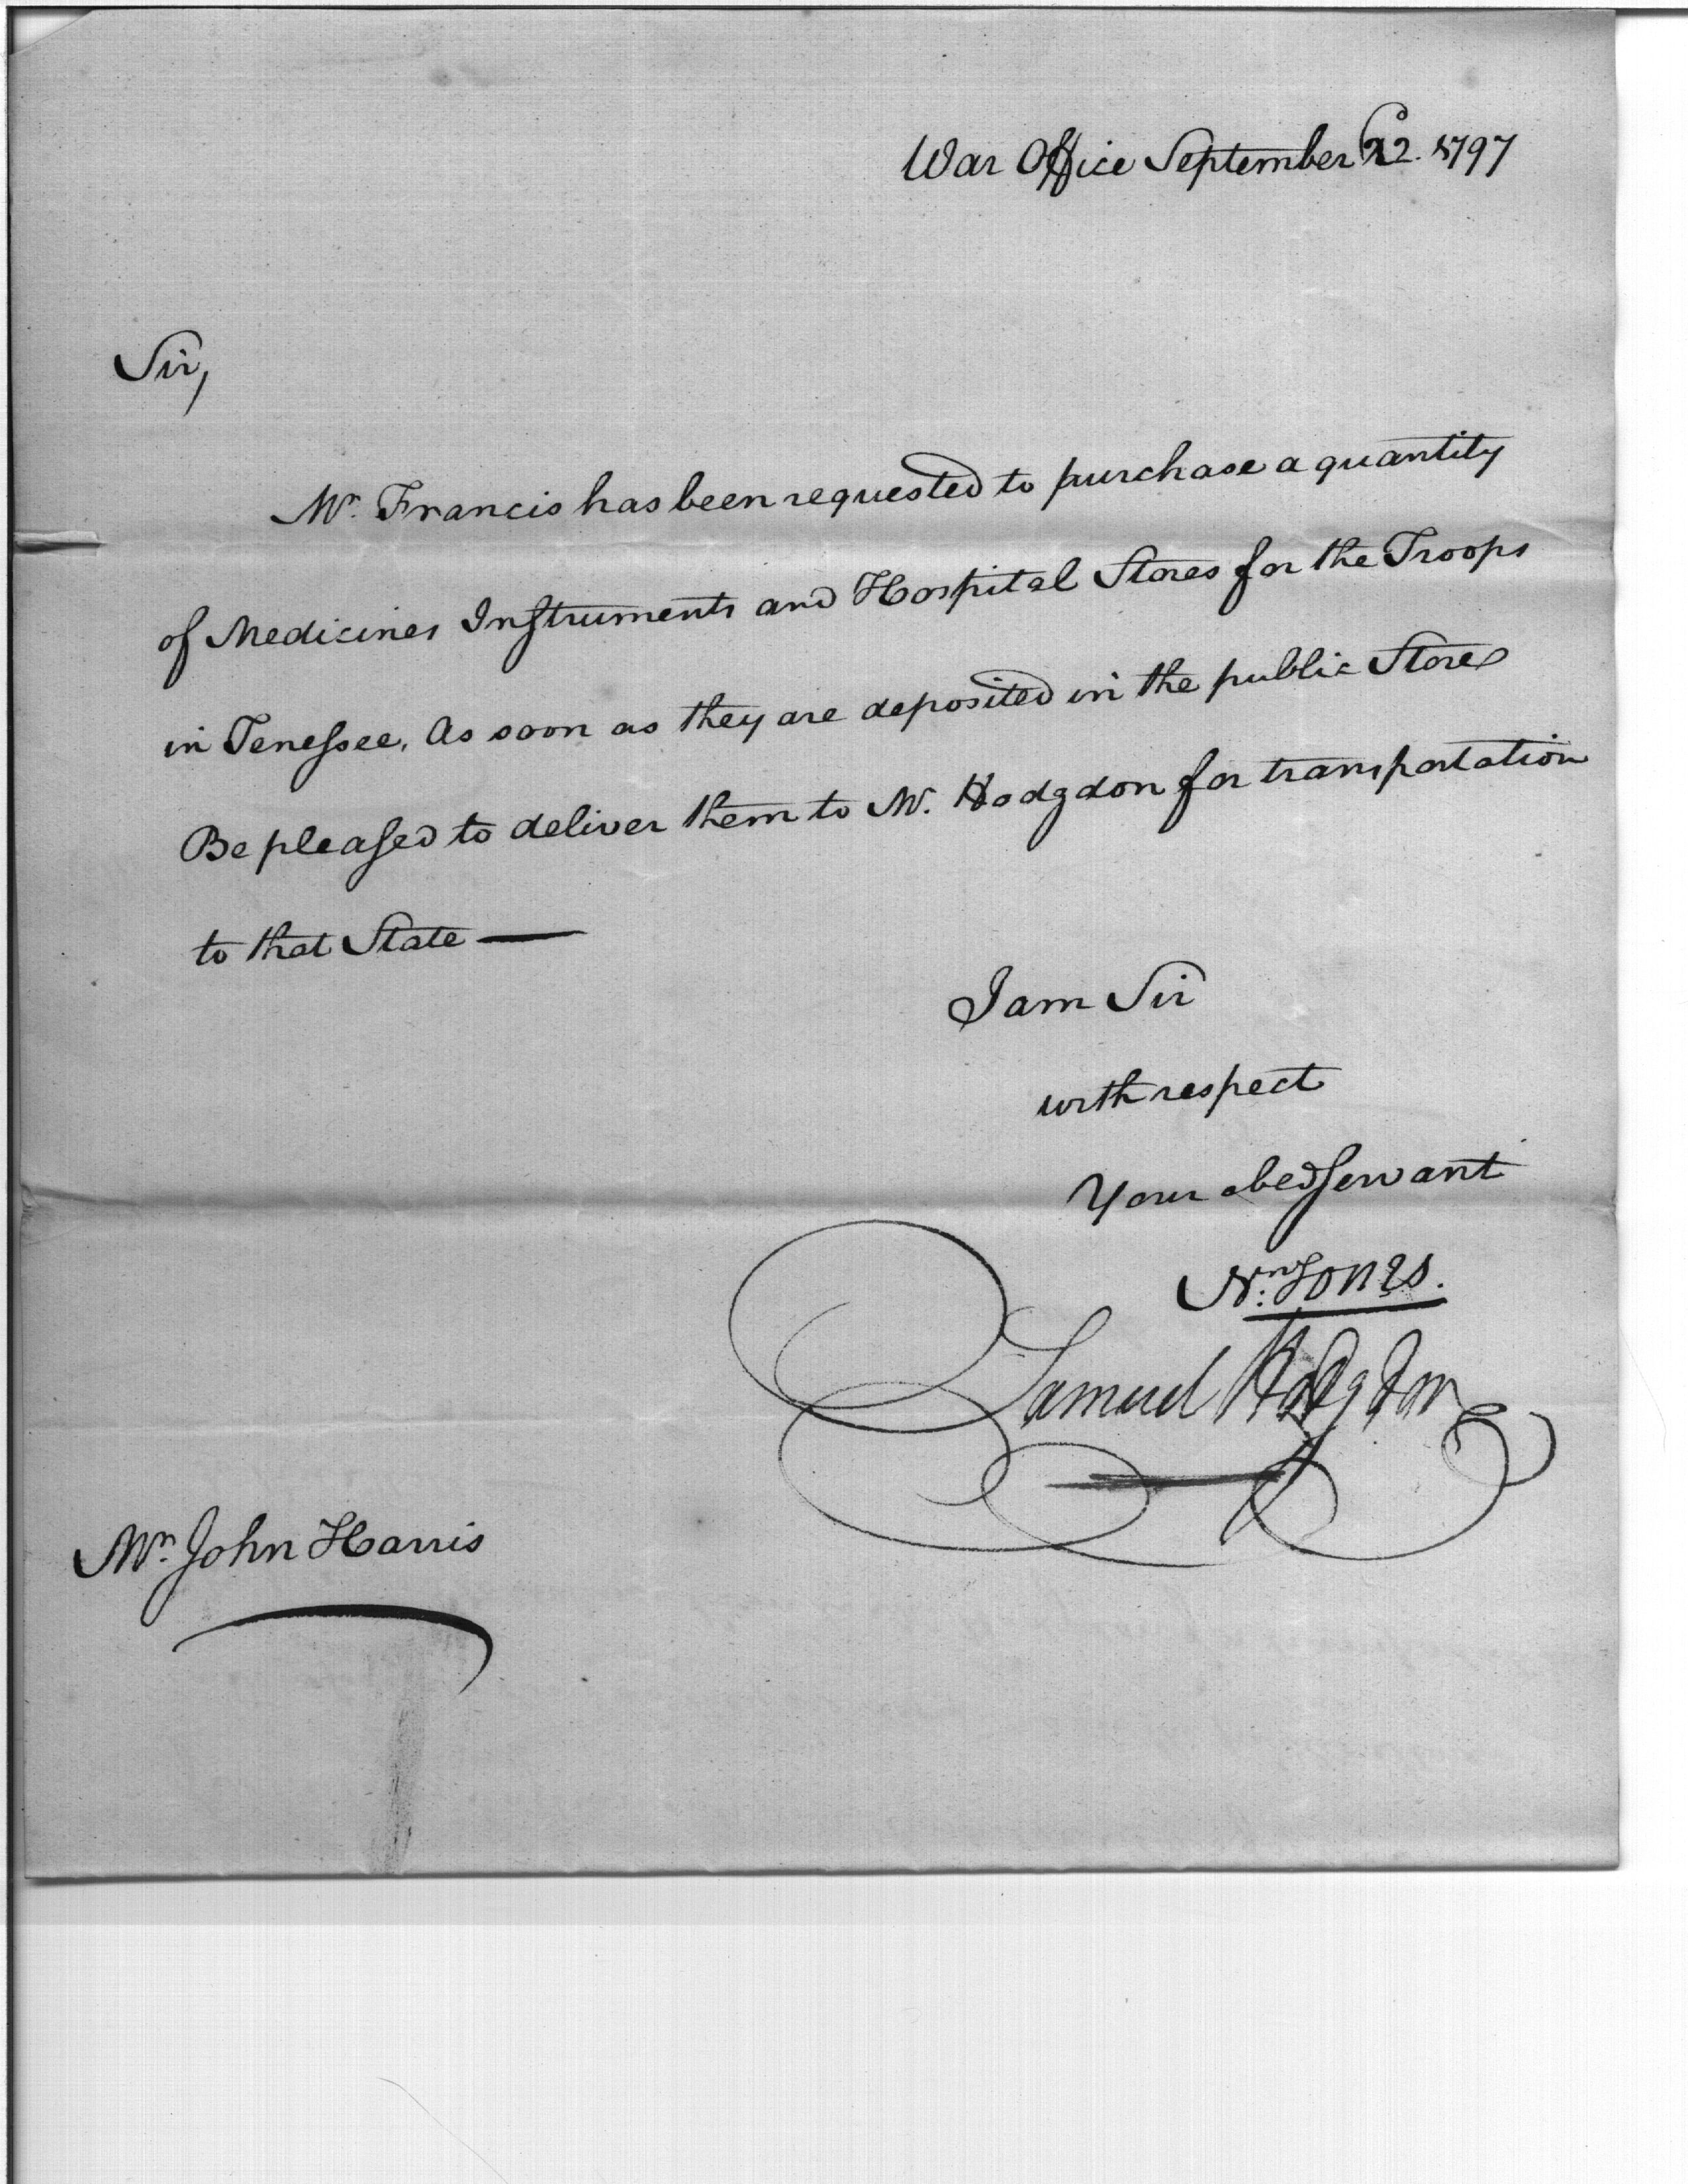 War Office September 22d. 1797
Sir,
Mr. Francis has been requested to purchase a quantity
of Medicines Instruments and Hospital Stores for the Troops
in Tenessee. As soon as they are deposited in the public Store
Be pleased to deliver them to Mr. Hodgdon for transportation
to that State —
I am Sir
with respect
Your obed servant
Nn. Jones.
Samuel Hodgdon
Mr. John Harris